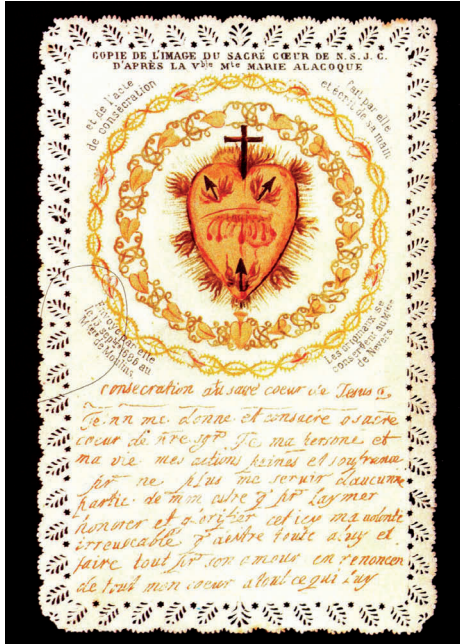 COPIE DE L'IMAGE DU SACRÉ CŒUR DE N. S. J. C.
D'APRÈS LA Vble Mte MARIE ALACOQUE
et de l'acte
de consécration
fait par elle
et écrit de sa main
Envoyé par elle
le 13 septe 1686 au
Mtère de Moulins
Les originaux se
conservent au Mtère
de Nevers
consecration au sacré coeur de Jesus
Je nn me donne et consacre o sacre
coeur de nre sgr Je ma persone et
ma vie mes actions peines et soufrance
pr ne plus me servir d'aucune
partie de mon estre q pr laymer
honorer et glorifier cest icy ma volonté
irrevocable d'aestre toute a luy et
faire tout pr son amour en renoncen
de tout mon coeur a tout ce qui luy